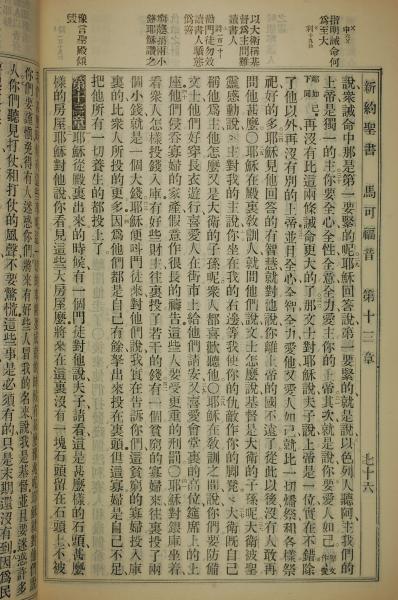 新約聖書　馬可福音　第十三章　七十六
指明誡命何
為至大
以大衛稱基
督為主問難
讀書人
勸門徒勿效
讀書人驕惰
寡婦捐兩小
錢耶穌讚之
豫言聖殿傾
毀
說衆誡命中那是第一要緊的呢耶穌回答說第一要緊的就是說以色列人聽阿主我們的
上帝是獨一的主你要全心全性全意全力愛主你的上帝其次就是說你要愛人如己
再沒有比這兩條誡命更大的了那文士對耶穌說夫子說上帝是一位實在不錯除
了他以外再沒有別的上帝並且全心全智全力愛他又愛人如己就比一切燔祭和各樣祭
祀好的多耶穌見他回答的有智慧就對他說你離上帝的國不遠了從此以後沒有人敢再
問他甚麼〇耶穌在殿裏教訓人就問他們說文士怎麼說基督是大衛的子孫呢大衛被聖
靈感動說主對我的主說你坐在我的右邊等我使你的仇敵作你的脚凳大衛既自己
稱他為主他怎麼又是大衛的子孫呢衆人都喜歡聽他〇耶穌在敎訓之間說你們要防備
文士他們好穿長衣遊行喜愛人在街市上給他們請安又喜愛會堂裏的高位筵席上的上
座他們侵吞寡婦的家產假意作很長的禱告這些人要受更重的刑罰〇耶穌對銀庫坐着
看衆人怎樣投錢入庫有好些財主往裏投了若干的錢有一個貧窮的寡婦來往裏投了兩
個小錢就是一個大錢耶穌便叫門徒來對他們說我實在告訴你們這貧窮的寡婦投入庫
裏的比衆人所投的更多因為他們都是自己有餘拏出來投在裏頭但這寡婦是自己不足
把他所有一切養生的都投上了
第十三章　耶穌從殿裏出來的時候有一個門徒對他說夫子請看這是甚麼樣的石頭甚麼
樣的房屋耶穌對他說你看見這些大房屋麼將來在這裏沒有一塊石頭留在石頭上不被
你們要謹愼免得有人迷惑你們將來有好些人冒我的名來說我是基督並且要迷惑許多
人你們聽見打仗和打仗的風聲不要驚慌這些事是必須有的只是末期還沒有到因為民